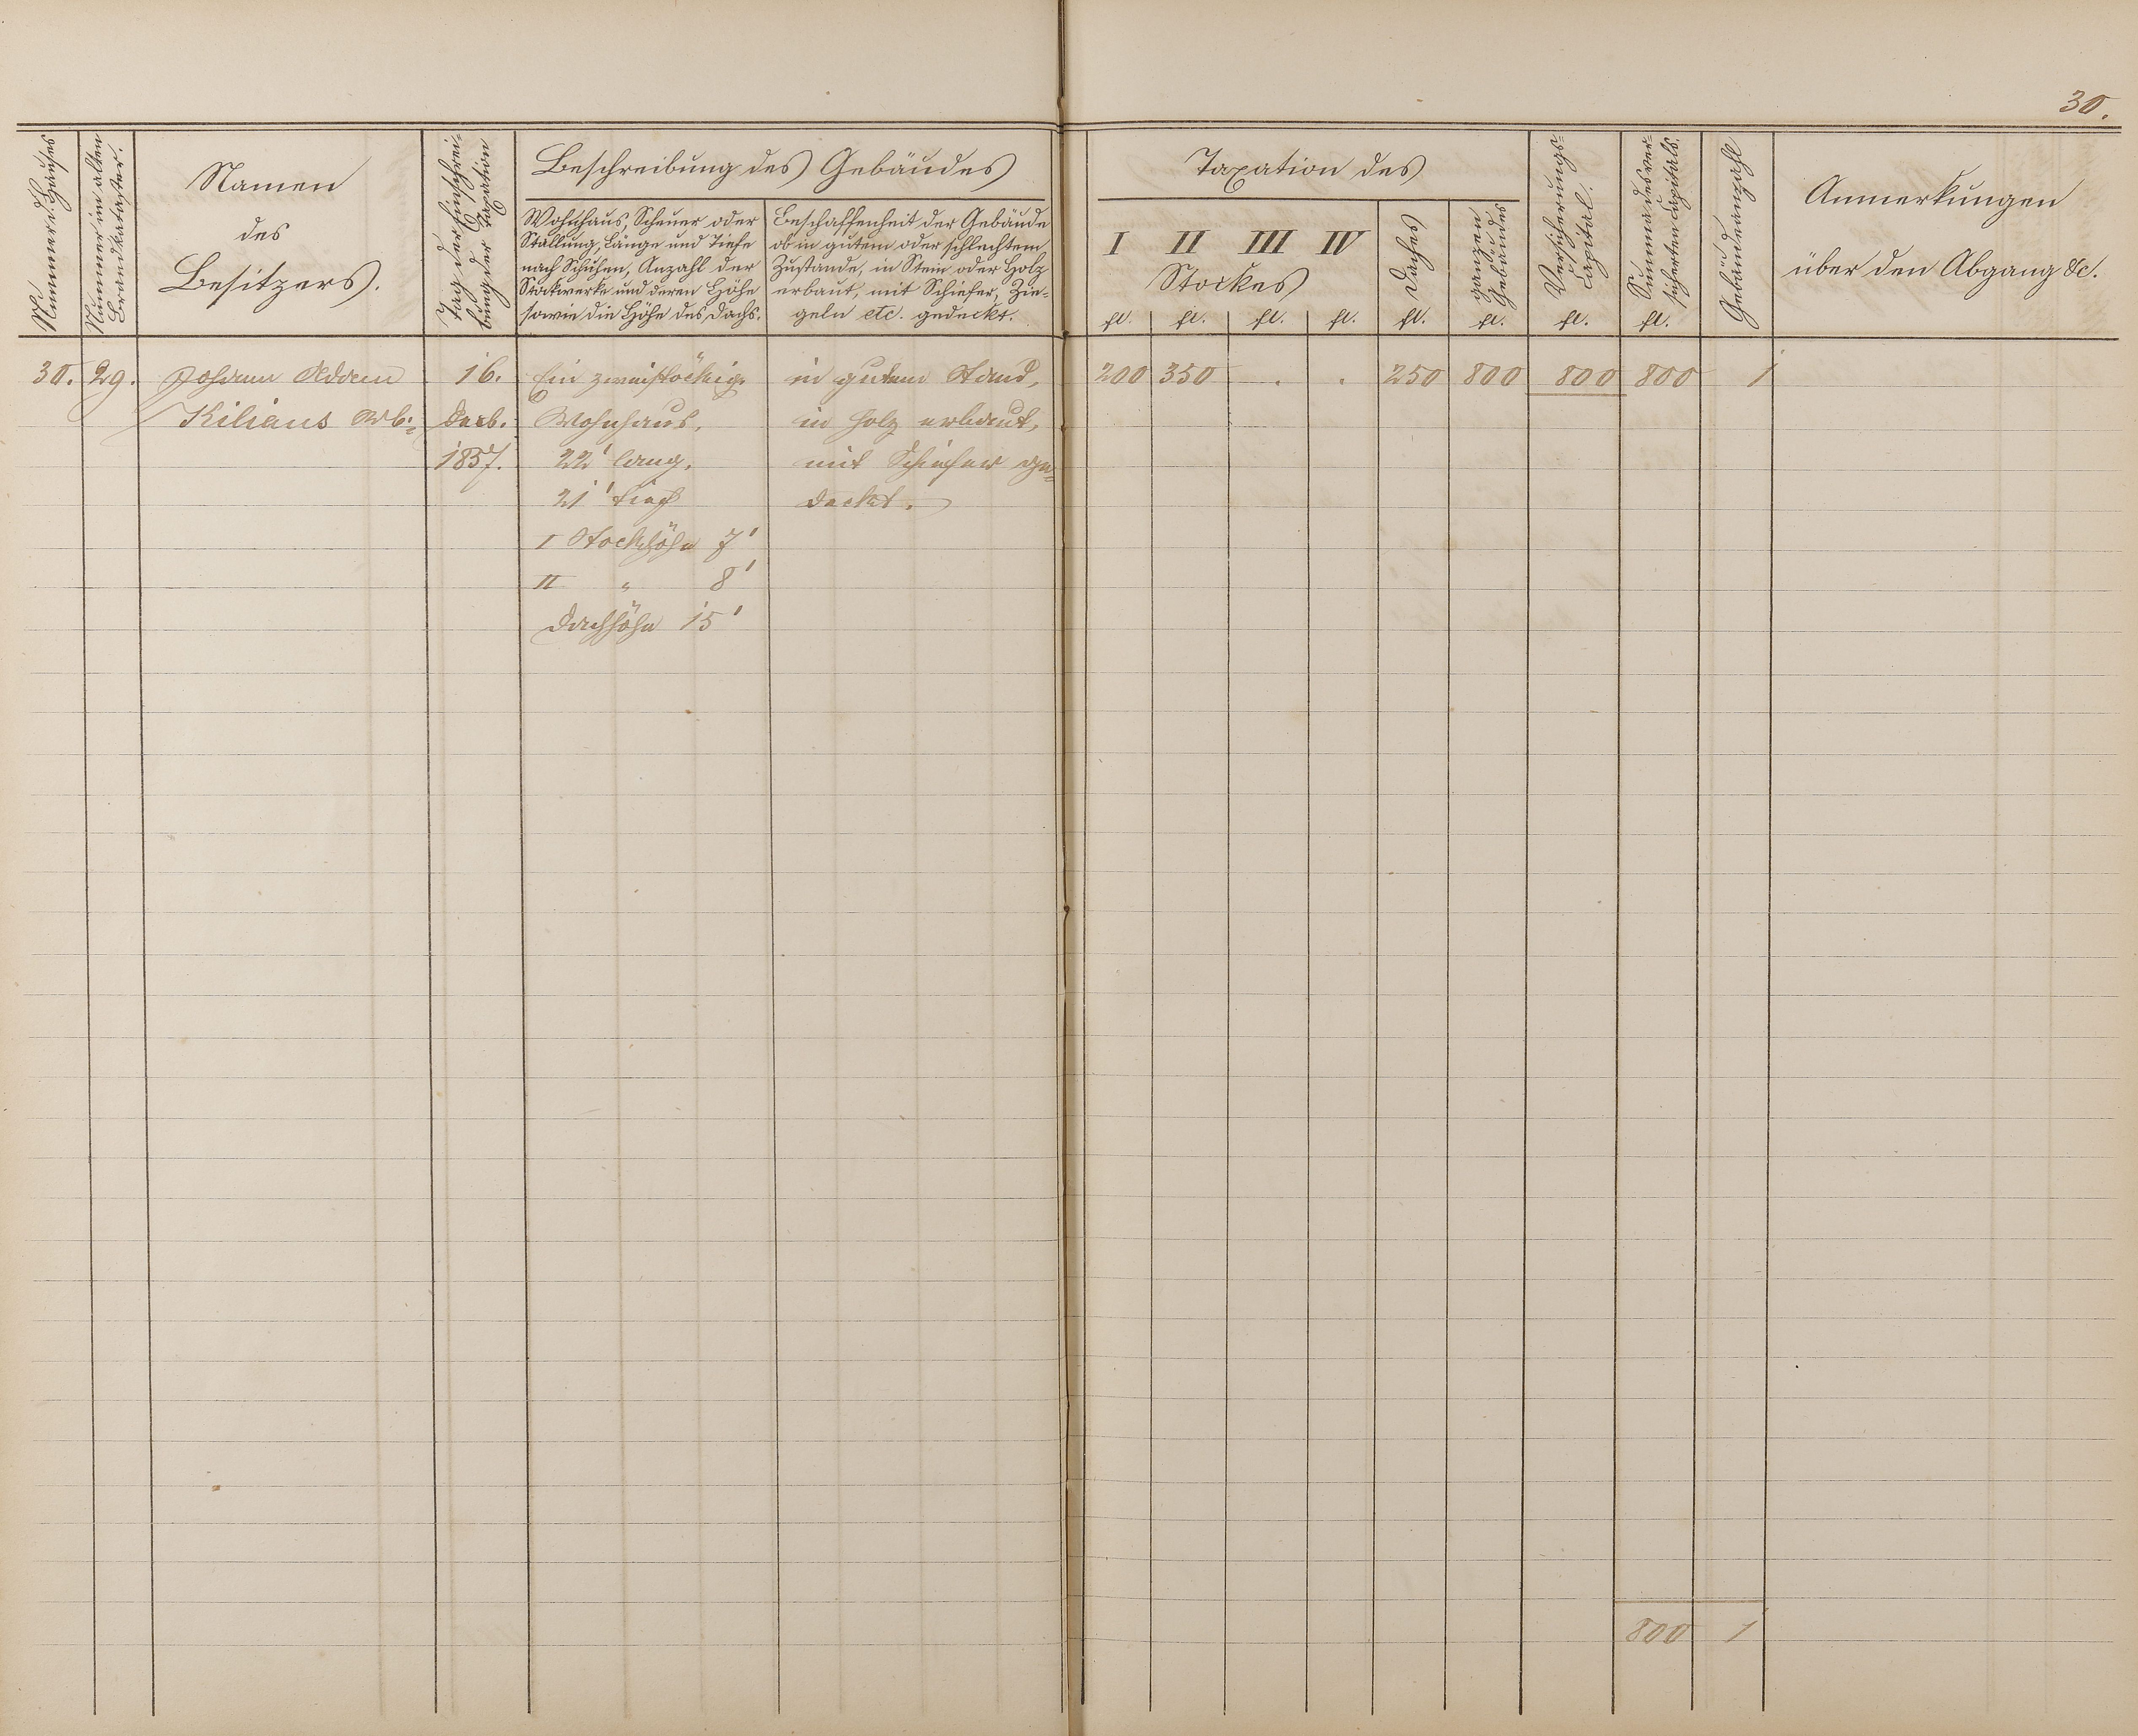 30.
Nummer d. Hauses
Nummer im alten
Brandkataster.
Namen
des
Besitzers.
Tag der Einschrei-
bung der Taxation
Beschreibung des Gebäudes
Wohnhaus, Scheuer oder
Stallung, Länge und Tiefe
nach Schuhen, Anzahl der
Stockwerke und deren Höhe
sowie die Höhe des Dachs.
Beschaffenheit der Gebäude
ob in gutem oder schlechtem
Zustande, in Stein oder Holz
erbaut, mit Schiefer, Zie-
geln etc. gedeckt.
Taxation des
I II III IV
Stockes
Daches
ganzen
Gebäudes
Versicherungs-
Capital.
Summa des ver-
sicherten Capitals.
Gebäudeanzahl
Anmerkungen
über den Abgang &c.
fl. fl. fl. fl. fl. fl. fl. fl.
30. 29. Johann Adam 16. Ein zweistöckig. in gutem Stand, 200 350 . . 250 800 800 800 1
Kilians Wb. Decb. Wohnhaus, in Holz erbaut,
1857. 22' lang, mit Schiefer ge=
21' tief deckt.
I Stockhöhe 7'
II " 8'
Dachhöhe 15'
800 1